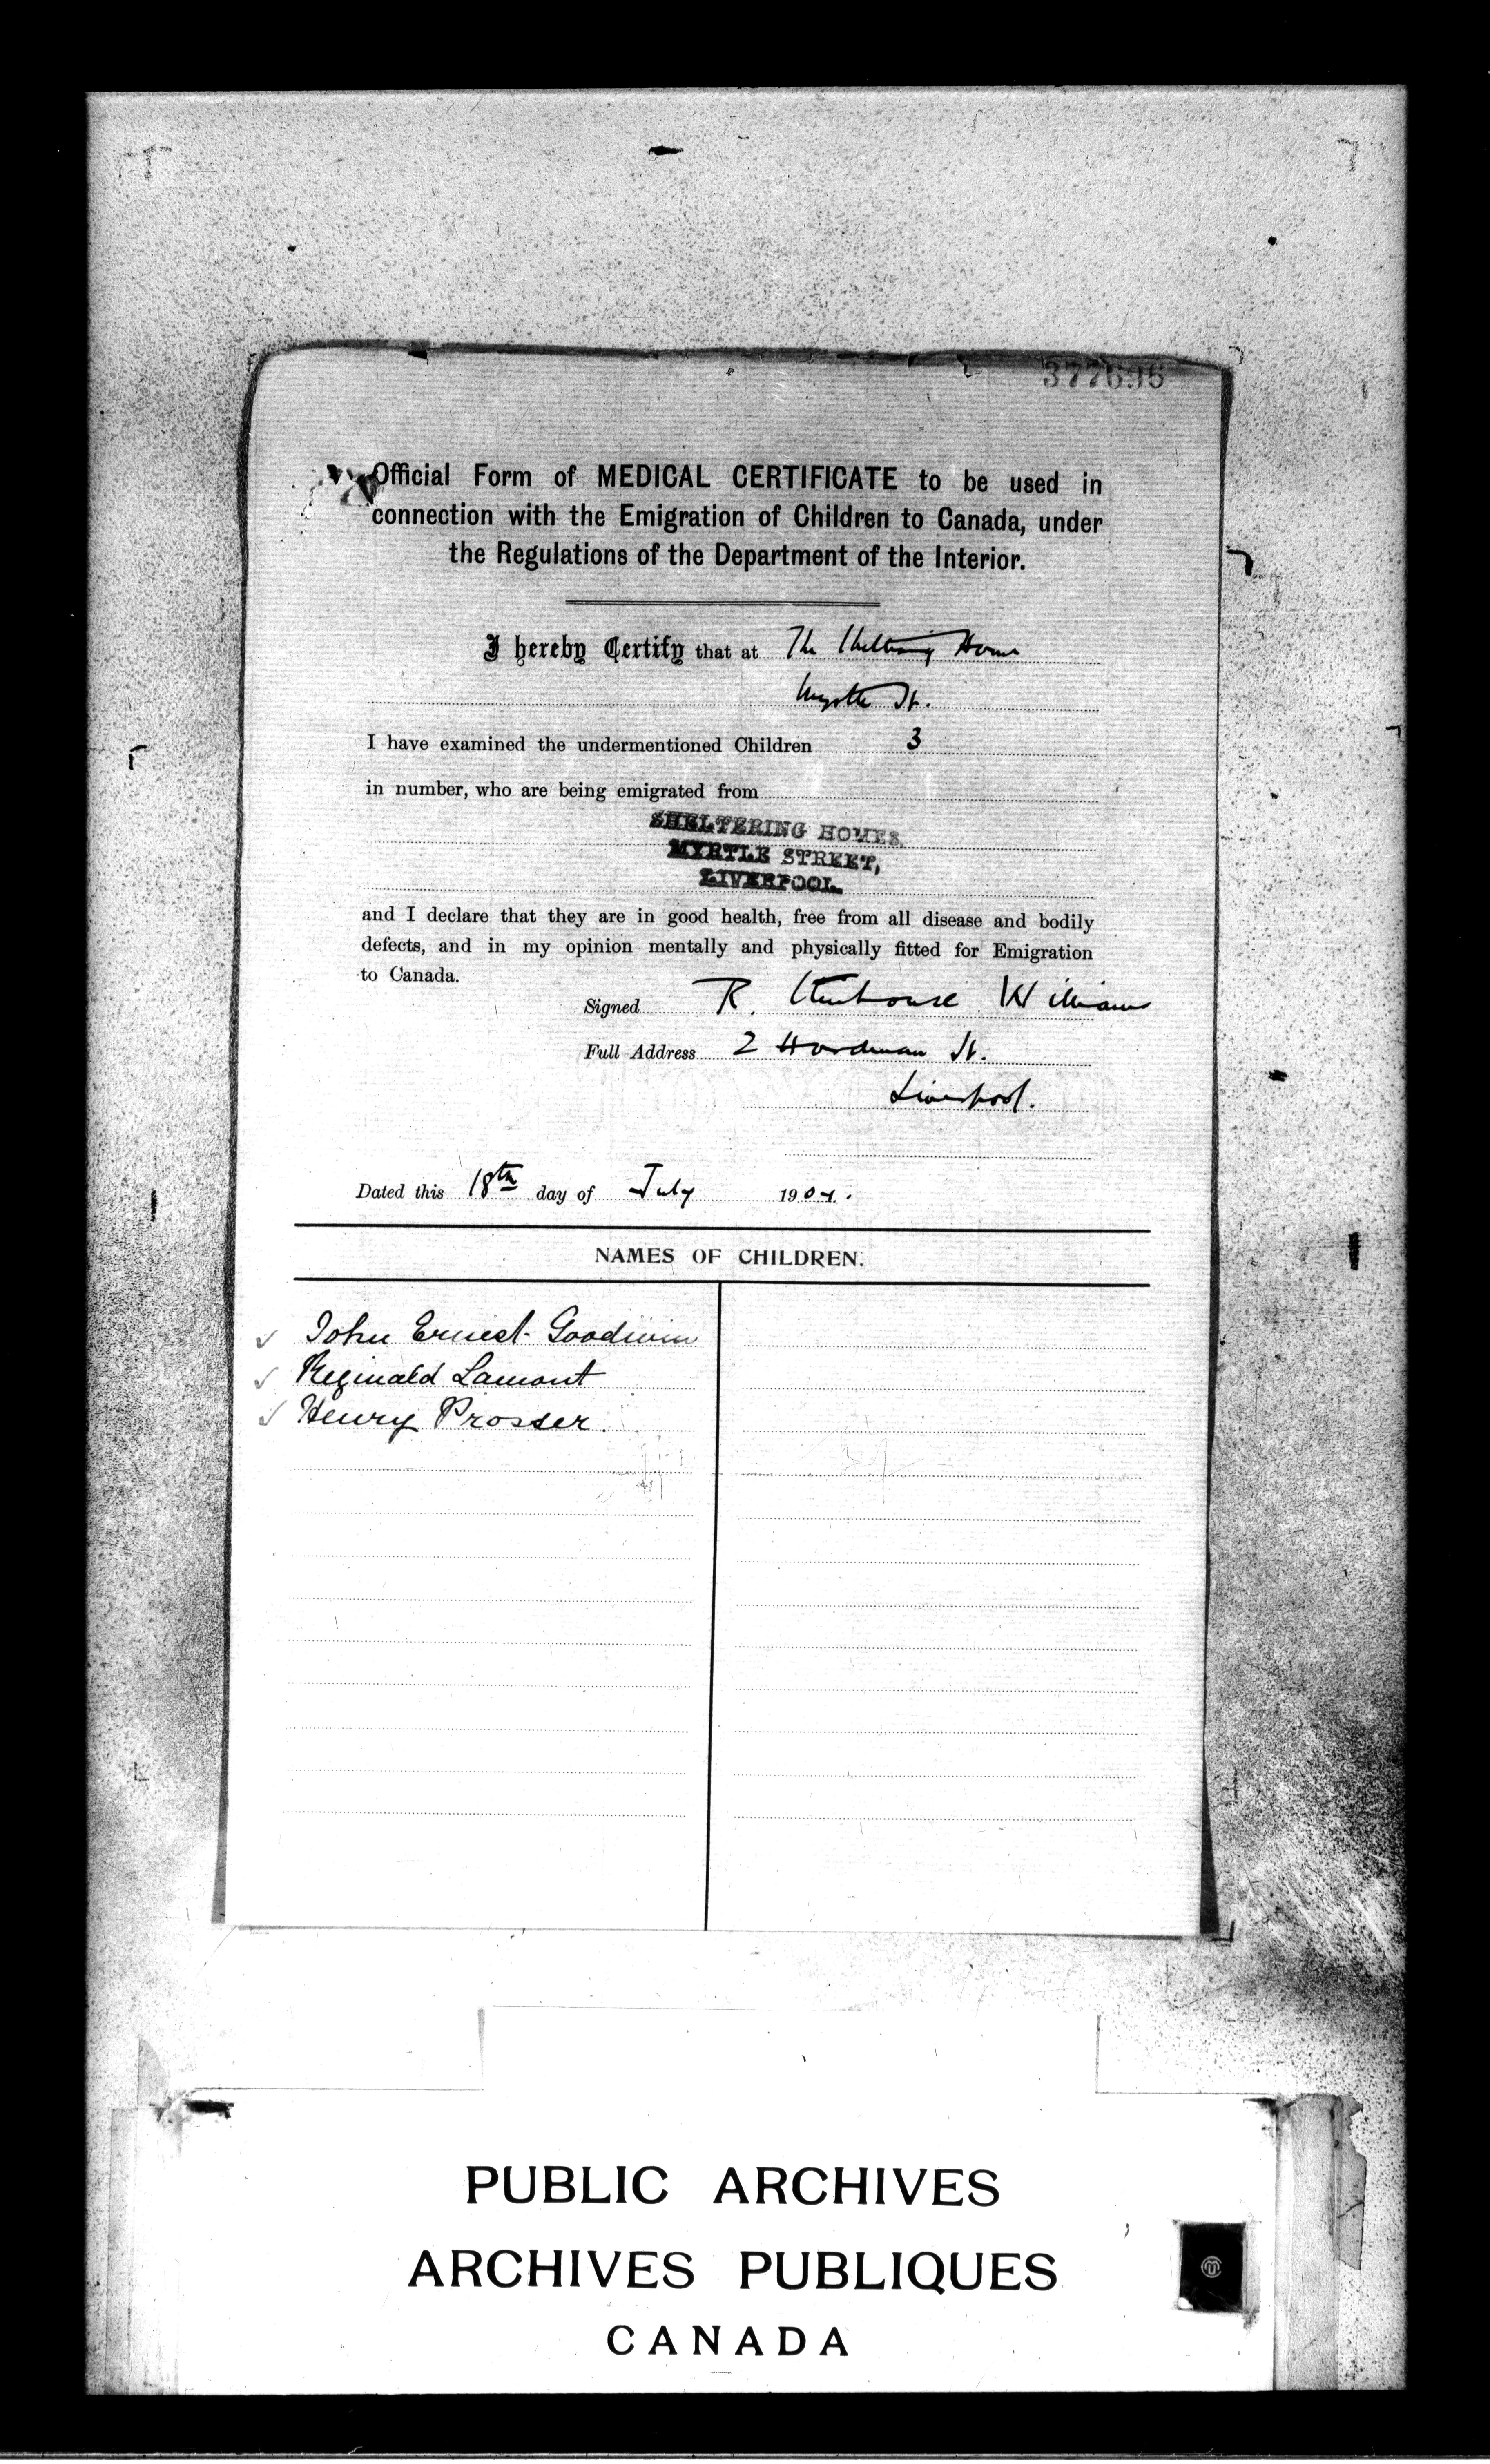 377696
Official Form of MEDICAL CERTIFICATE to be used in
connection with the Emigration of Children to Canada, under
the Regulations of the Department of the Interior.
I hereby Certify that at The Sheltering Home
Myrtle St.
I have examined the undermentioned Children 3
in number, who are being emigrated from
SHELTERING HOMES,
MYRTLE STREET,
LIVERPOOL.
and I declare that they are in good health, free from all disease and bodily
defects, and in my opinion mentally and physically fitted for Emigration
to Canada.
Signed R. Stenhouse Williams
Full Address 2 Hardman St.
Liverpool.
Dated this 18th day of July 190
NAMES OF CHILDREN.
John Ernest Goodwin
Reginald Lamont
Henry Prosser.
PUBLIC ARCHIVES
ARCHIVES PUBLIQUES
CANADA